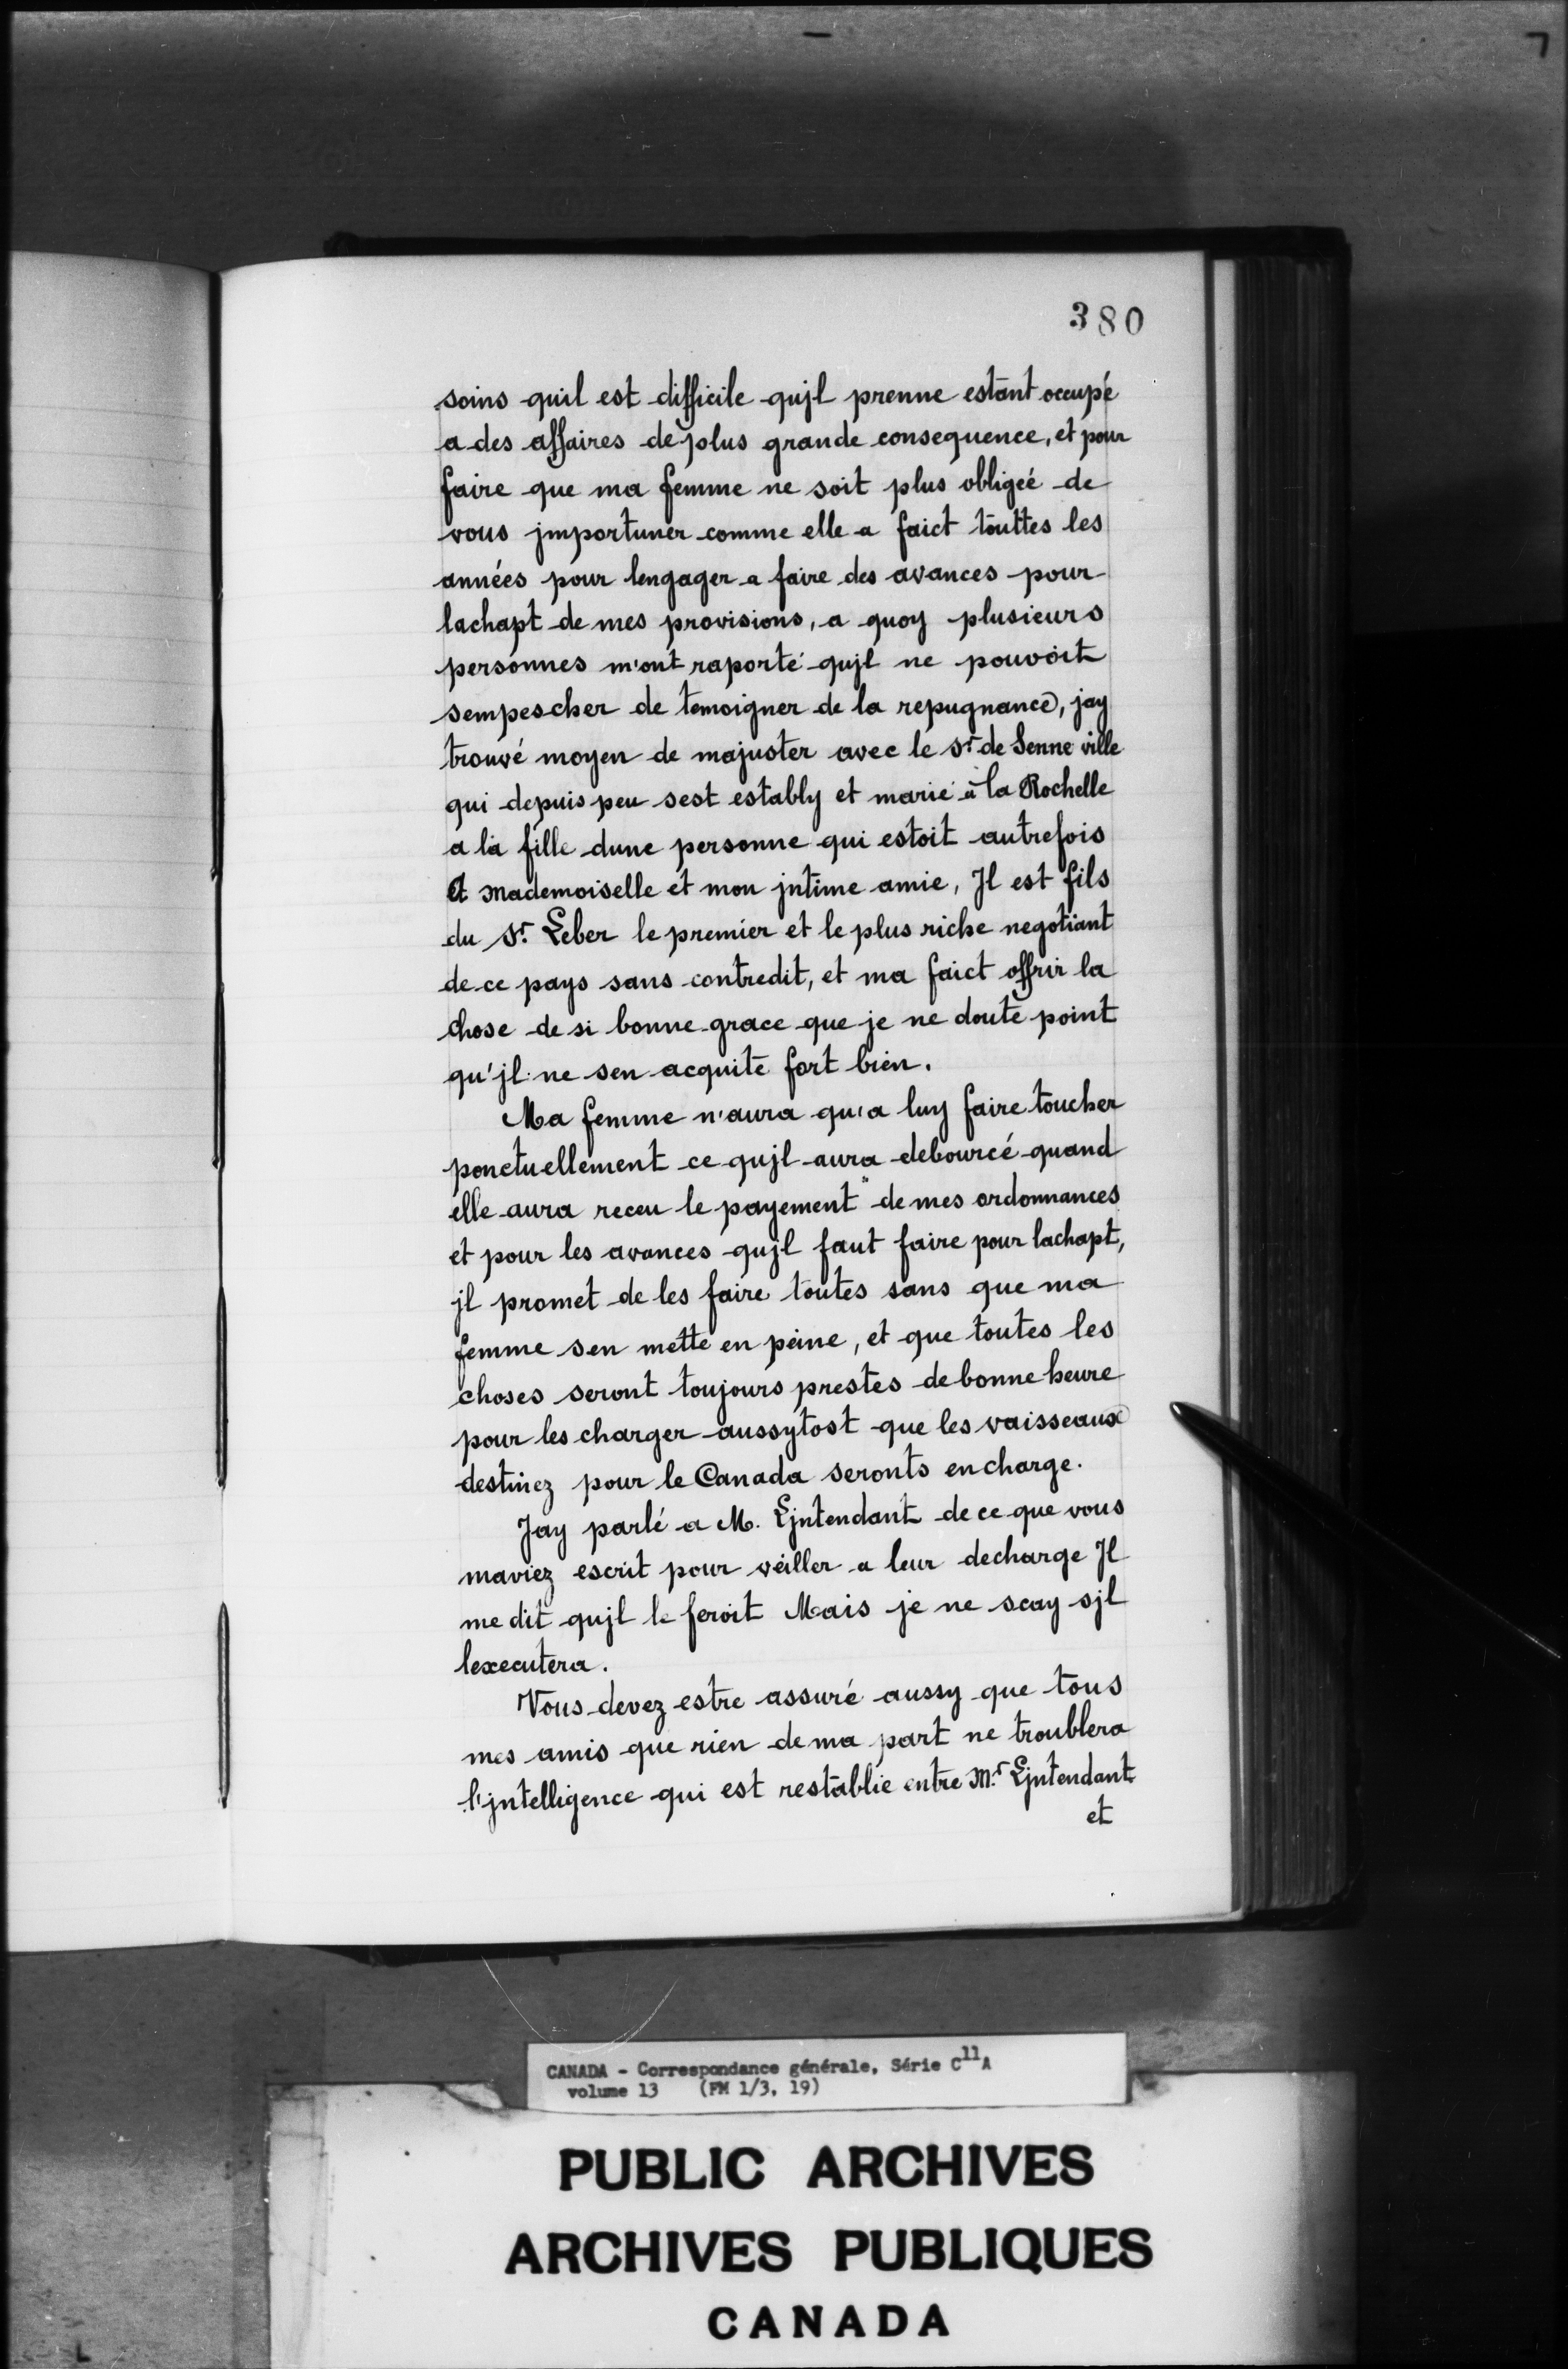 380
soins quil est difficile qujl prenne estant occupé
a des affaires de plus grande consequence, et pour
faire que ma femme ne soit plus obligeé de
vous jmportuner comme elle a faict touttes les
années pour lengager a faire des avances pour
lachapt de mes provisions, a quoy plusieurs
personnes m'ont raporté qujl ne pouvoit
sempescher de temoigner de la repugnance, jay
trouvé moyen de majuster avec le Sr. de Senne ville
qui depuis peu sest estably et marié a la Rochelle
a la fille dune personne qui estoit autrefois
et Mademoiselle et mon jntime amie, Jl est fils
du Sr. Leber le premier et le plus riche negotiant
de ce pays sans contredit, et ma faict offrir la
chose de si bonne grace que je ne doute point
qu'jl ne sen acquite fort bien.
Ma femme n'aura qu'a luy faire toucher
ponctuellement ce qujl aura debourcé quand
elle aura receu le payement de mes ordonnances
et pour les avances qujl faut faire pour lachapt,
jl promet de les faire toutes sans que ma
femme sen mette en peine, et que toutes les
choses seront toujours prestes de bonne heure
pour les charger aussytost que les vaisseaux
destinez pour le Canada seronts en charge.
Jay parlé a M. Ljntendant de ce que vous
maviez escrit pour veiller a leur decharge Jl
me dit qujl le feroit Mais je ne scay sjl
lexecutera.
Vous devez estre assuré aussy que tous
mes amis que rien de ma part ne troublera
l'jntelligence qui est restablie entre Mr. Ljntendant
et
CANADA - Correspondance générale, Série C11A
volume 13 (FM 1/3, 19)
PUBLIC ARCHIVES
ARCHIVES PUBLIQUES
CANADA